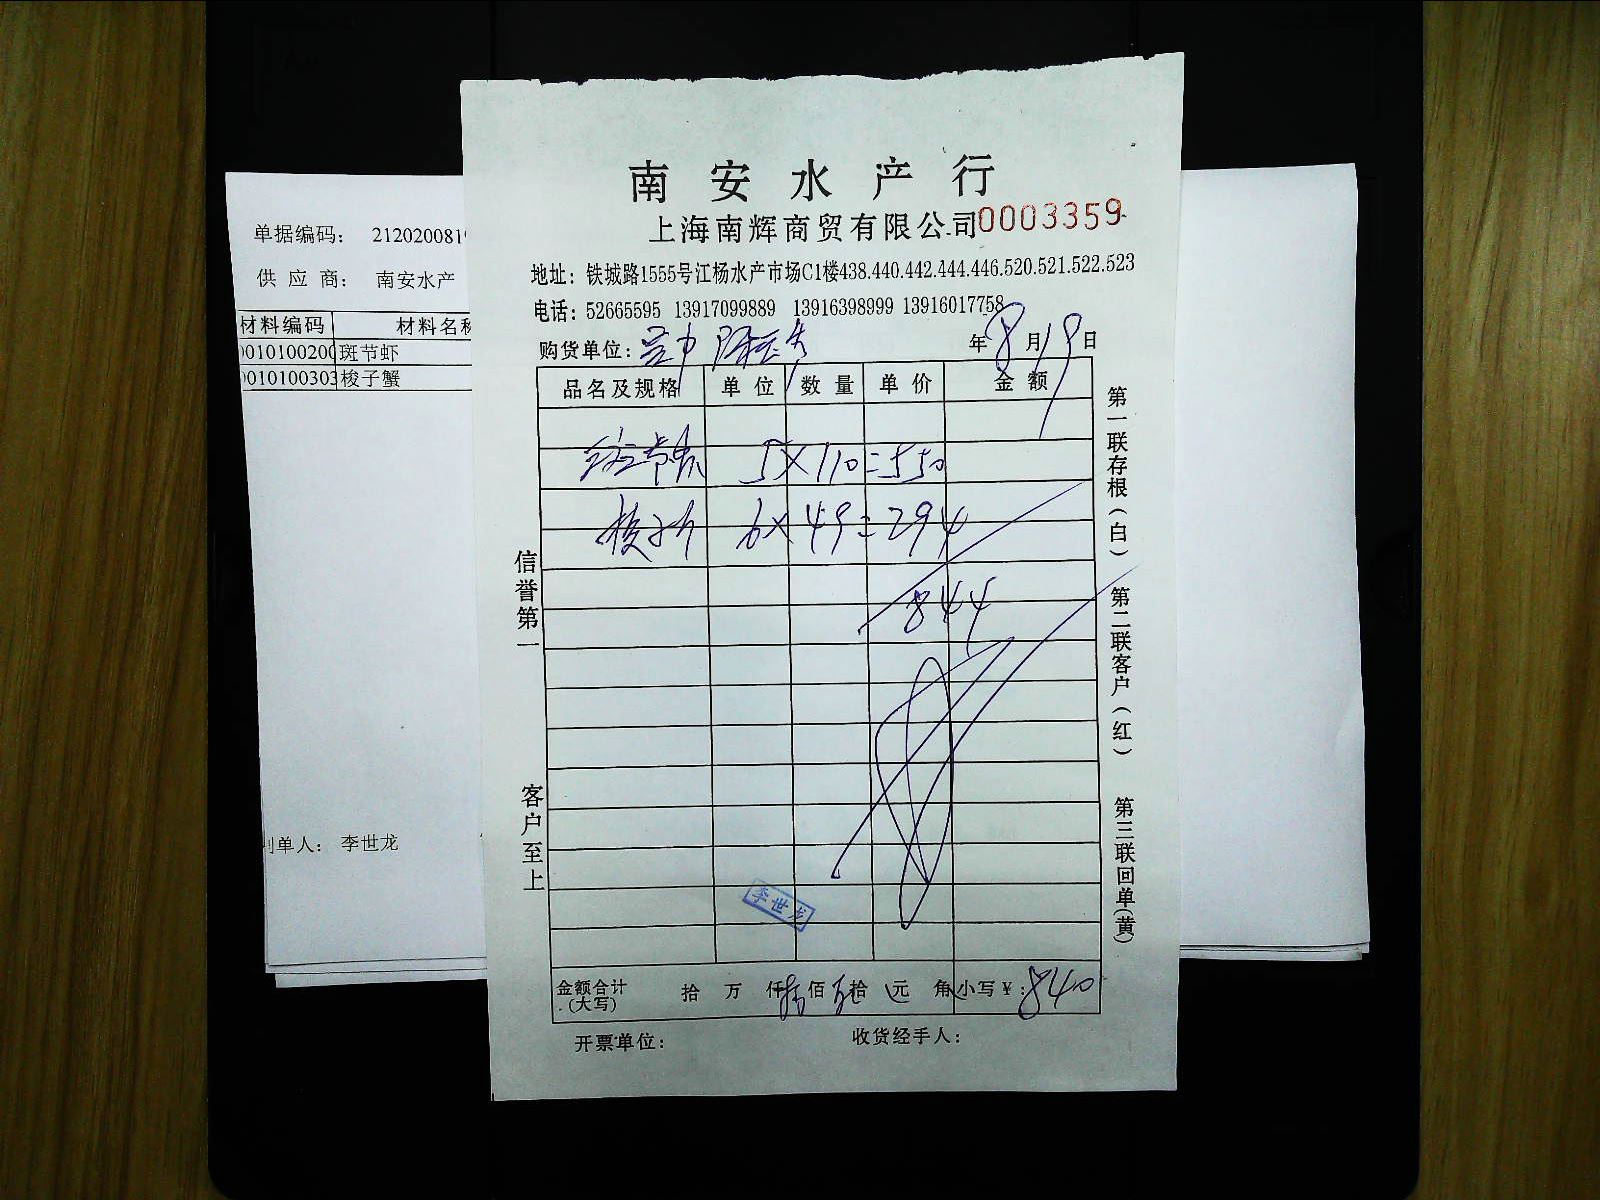 南安水产行
上海南辉商贸有限公司0003359
地址：铁城路1555号江杨水产市场C1楼438.440.442.444.446.520.521.522.523
电话：52665595 13917099889 13916398999 13916017758
购货单位：
年8月19日
品名及规格 单位 数量 单价 金额
斑节虾 5×110=550
梭子 6×49=294
844
金额合计(大写) 拾 万 仟 佰 拾 元 角 小写￥：840
开票单位： 收货经手人：
信誉第一
客户至上
第一联存根(白)
第二联客户(红)
第三联回单(黄)
李世龙
单据编码： 212020081
供应商： 南安水产
材料编码 材料名称
0010100200 斑节虾
0010100303 梭子蟹
制单人： 李世龙